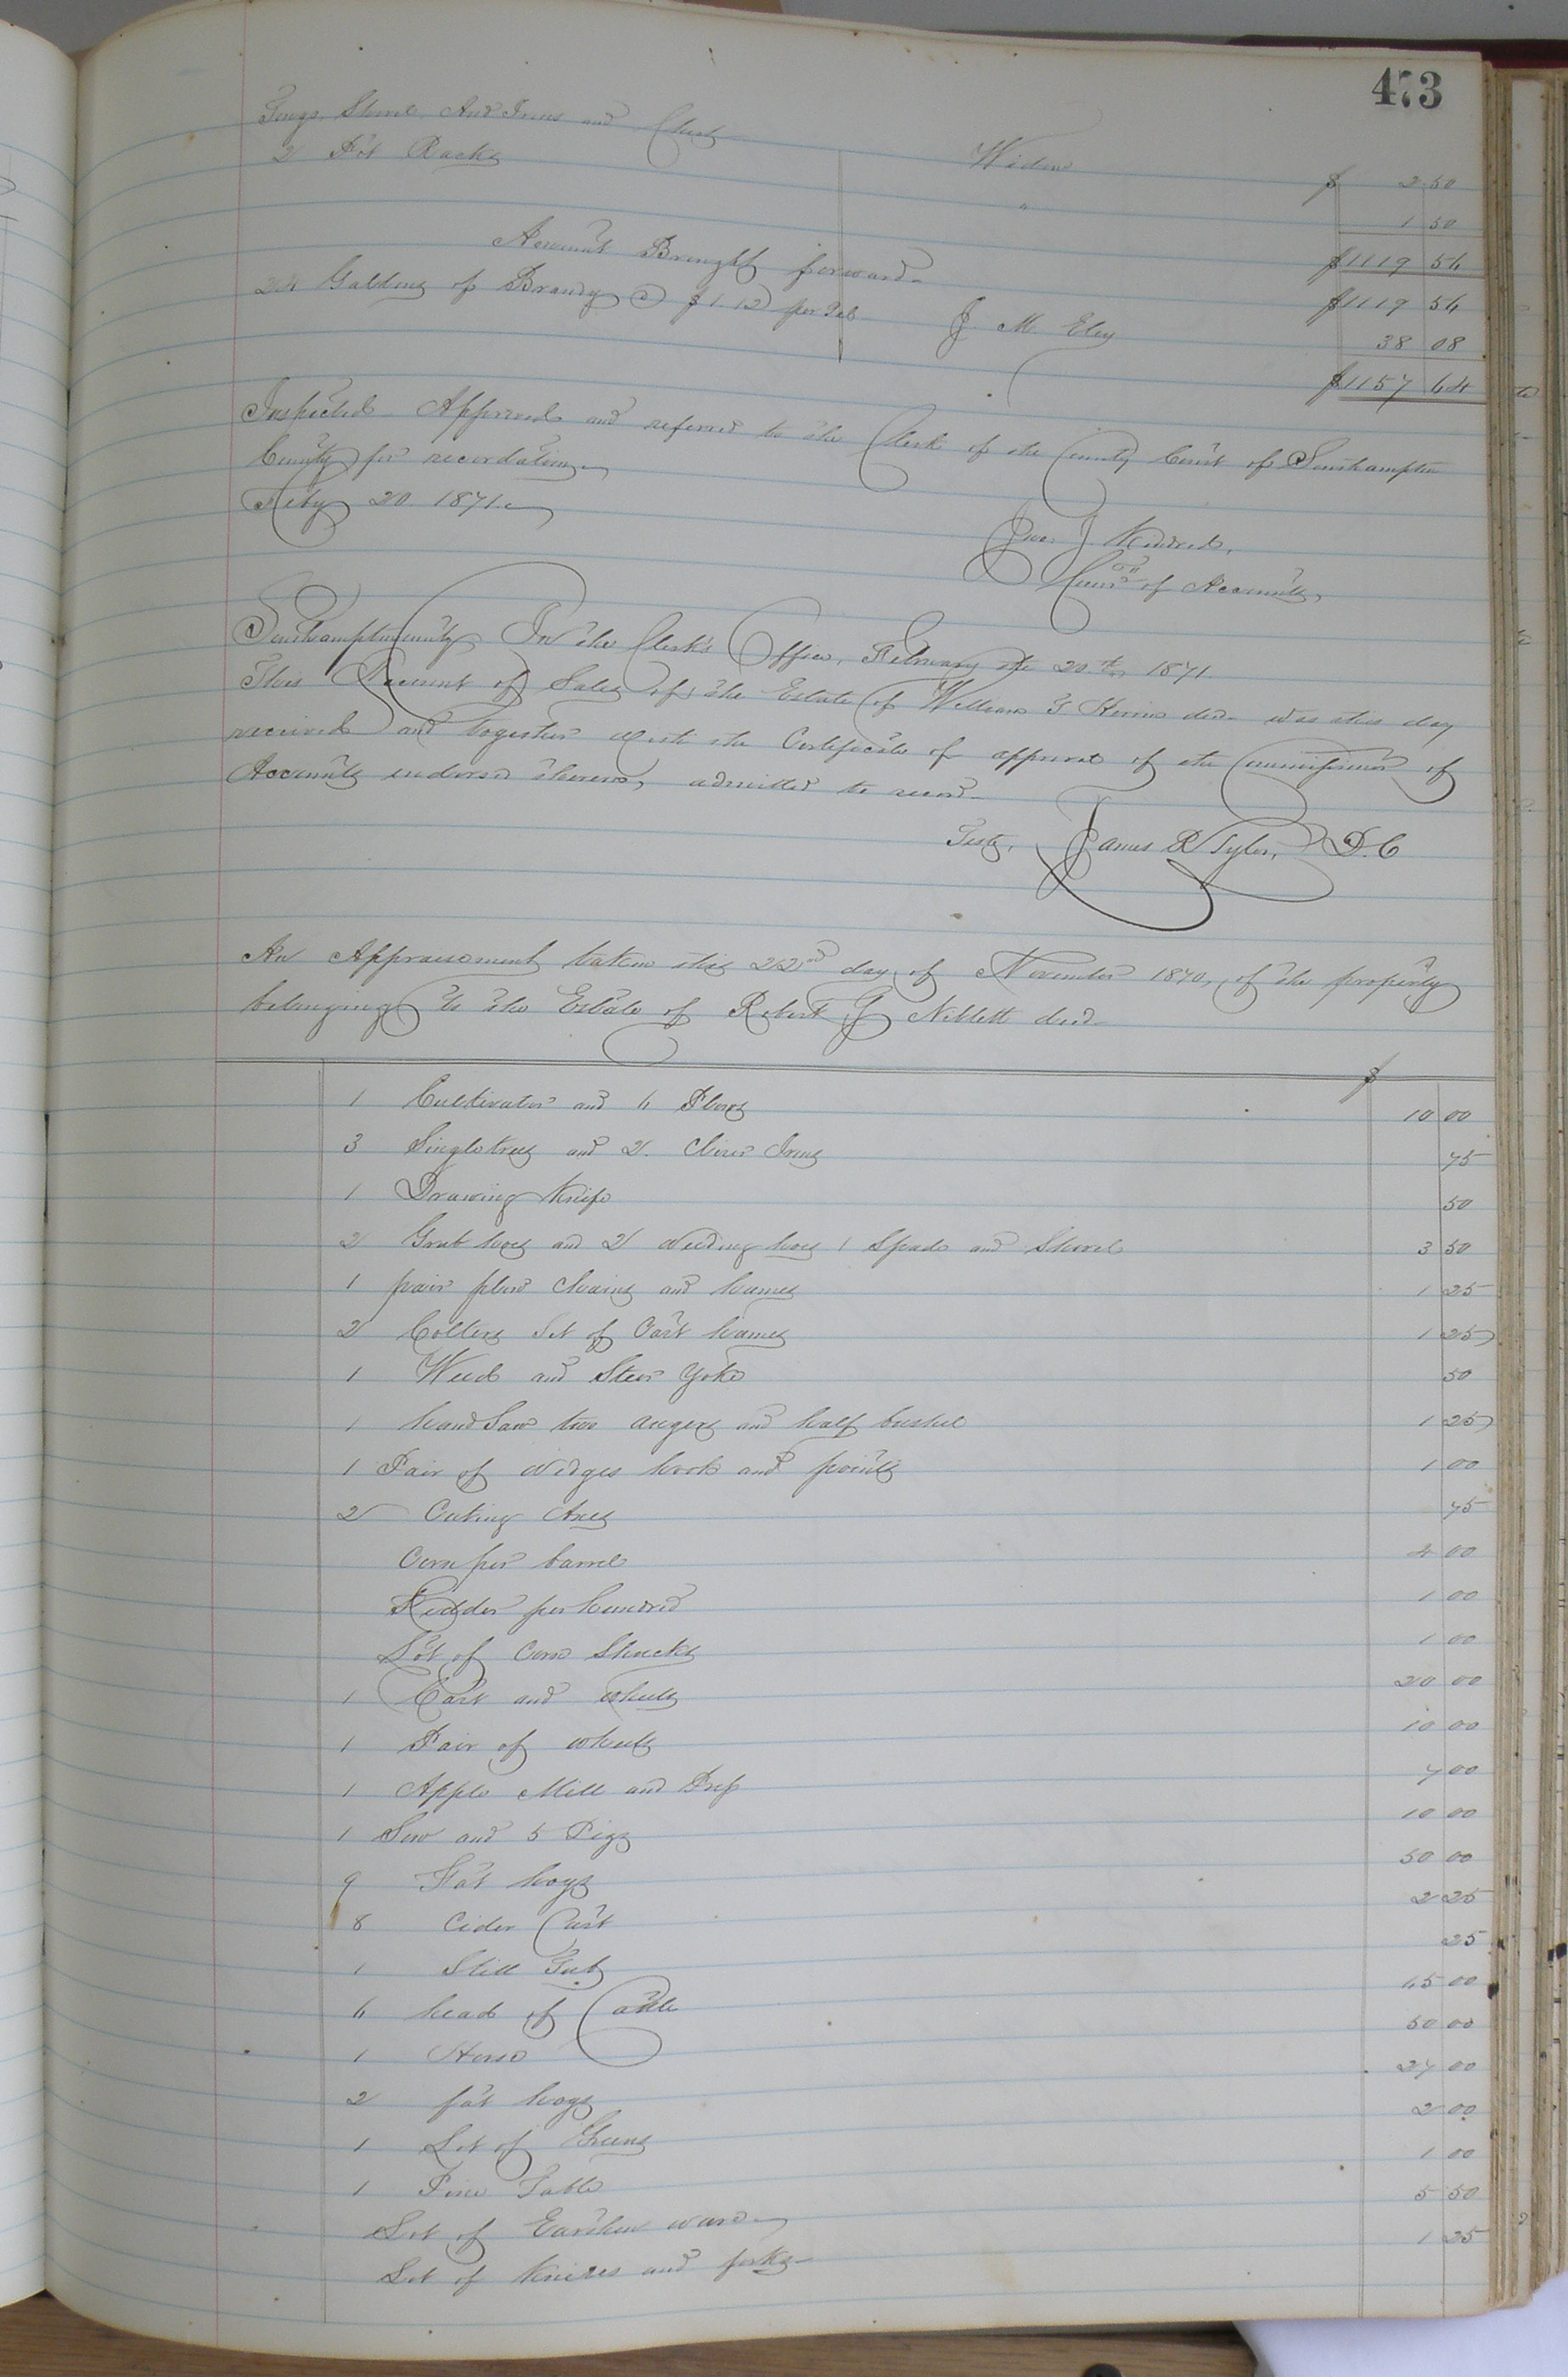 473
Tongs, Shovel, And Irons and Chest Widow $ 2 50
2 Pot Racks " 1 50
$1119 56
Account Brought forward $1119 56
34 Gallons of Brandy @ $1.12 per Gal J. M. Eley 38 08
$1157 64
Inspected Approved and referred to the Clerk of the County Court of Southampton
County for recordation
Feby 20 1871.
Jno. J. Kindred,
Comr of Accounts,
Southampton County In the Clerk's Office, February the 20th 1871.
This Account of Sales of the Estate of William T. decd. was this day
received and together with the Certificate of approval of the Commissioner of
Accounts endorsed thereon, admitted to record
Teste, James R Tyler, D.C
An Appraisement taken this 22nd day of November 1870, of the property
belonging to the Estate of Robert G Niblett decd.
$
1 Cultivator and 6 Plows 10 00
3 Singletrees and 2 Clevis Irons 75
1 Drawing Knife 50
2 Grub hoes and 2 weeding hoes 1 Spade and Shovel 3 50
1 pair plow chains and hames 1 25
2 Colters Set of Cart hames 1 25
1 and Steer Yoke 50
1 hand Saw two augers and half bushel 1 25
1 Pair of wedges hook and points 1 00
2 Cuting Axes 75
Corn per barrel 4 00
Fodder per hundred 1 00
Lot of Corn Shucks 1 00
1 Cart and wheels 20 00
1 Pair of wheels 10 00
1 Apple Mill and Press 7 00
1 Sow and 5 Pigs 10 00
9 Fat hogs 50 00
8 Cider Cast 2 25
1 Still Tub 25
6 head of Cattle 65 00
1 Horse 50 00
2 fat hogs 27 00
1 Lot of Greens 2 00
1 Pine Table 1 00
Lot of Earthen ware 5 50
Lot of Knives and forks 1 25